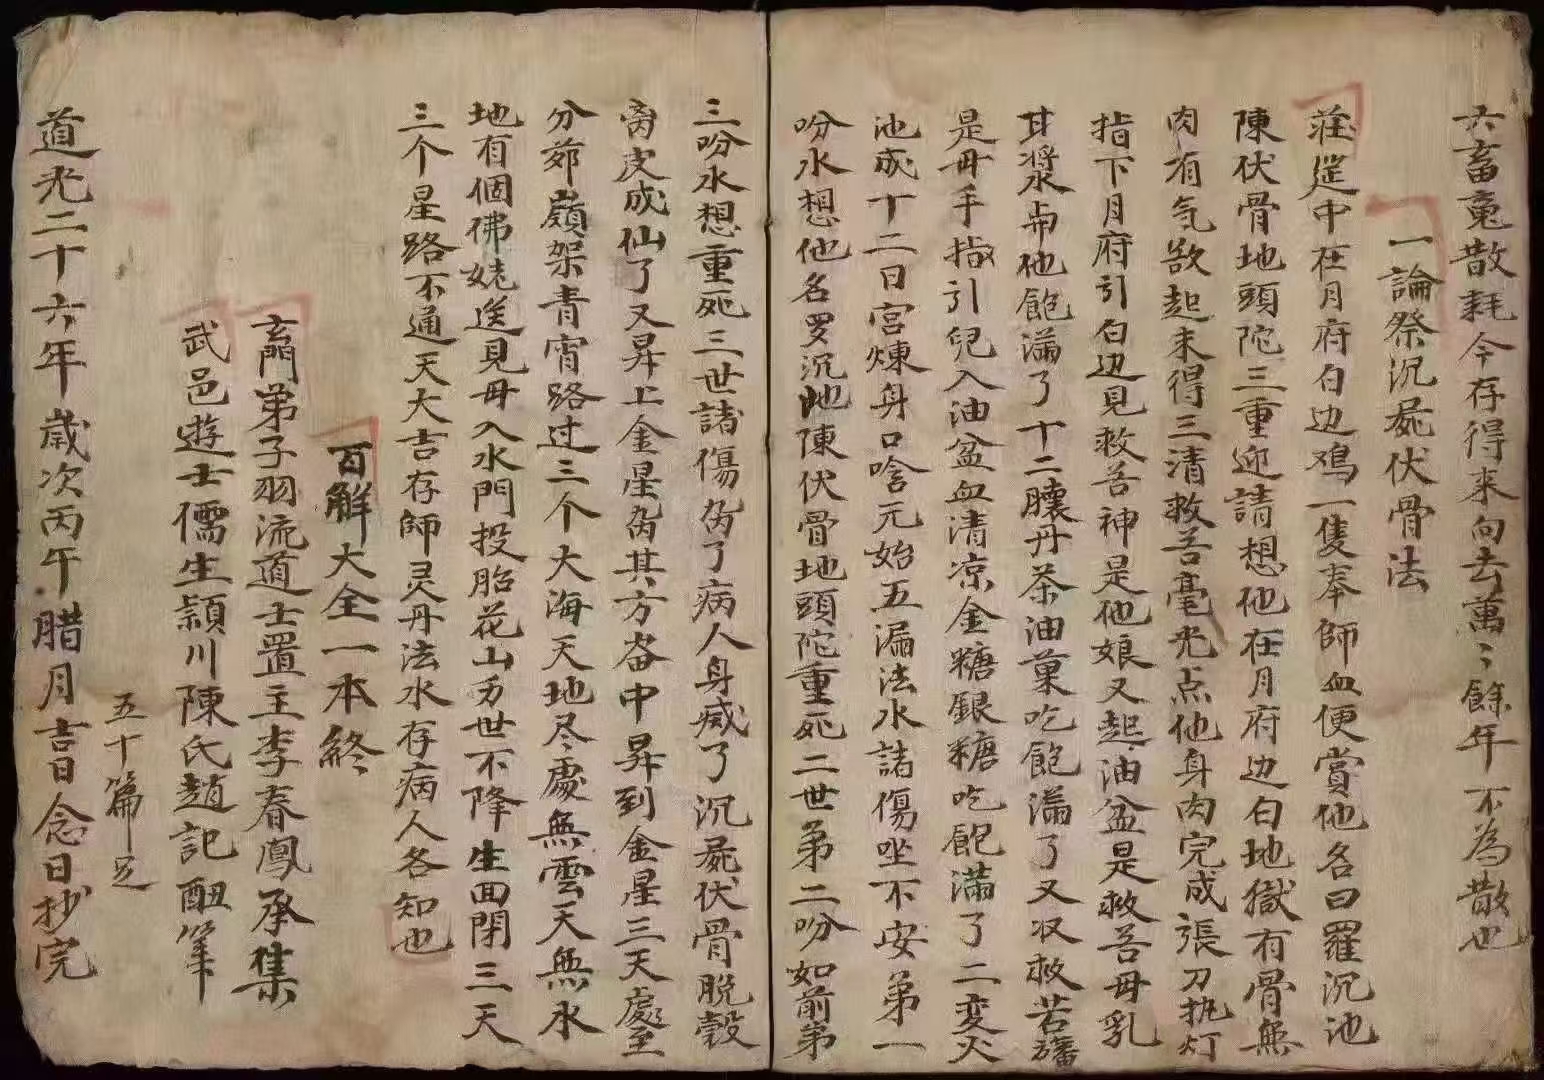 六畜竟散耗今存得来向去萬〻餘年不為散也
一論祭沉屍伏骨法
莊筵中在月府白边鳮一隻奉師血便賞他名曰羅沉池
陳伏骨地頭陀三重迎請想他在月府边白地獄有骨無
肉有气欲起来得三清救苦毫光点他身肉完成張刀执灯
指下月府引白边見救苦神是他娘又起油盆是救苦母乳
甘漿水与他飽滿了十二䑋丹茶油菓吃飽滿了又収救苦旛
是母手指引兒入油盆血清凉金糖銀糖吃飽滿了二变火
池成十二日宮煉身口唅元始五漏法水諸傷坐不安第一
吩水想他名罗沉地陳伏骨地頭陀重死二世第二吩如前第
三吩水想重死三世諸傷务了病人身咸了沉屍伏骨脫殼
离皮成仙了又昇上金星务其方畓中昇到金星三天處至
分茆嶺架青宵路过三个大海天地尽處無雲天無水
地有個佛姥送見母入水門投胎花山另世不降生回閉三天
三个星路不通天大吉存師灵丹法水存病人各知也
百解大全一本終
玄門弟子羽流道士置主李春鳳承集
武邑遊士儒生穎川陳氏趙記醜筆
五十篇足
道光二十六年歲次丙午腊月吉日念日抄完